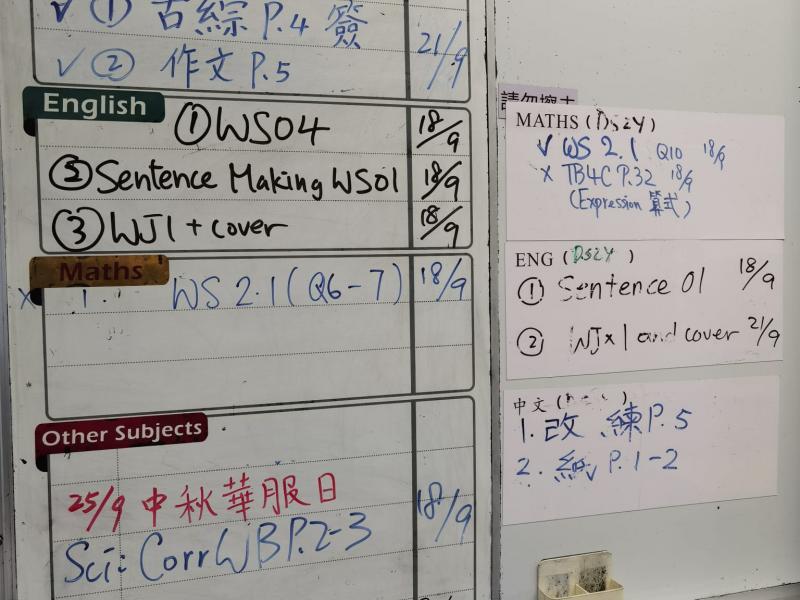 ✓ ① 古綜 P.4 簽
✓ ② 作文 P.5
21/9
English
① WS04 18/9
② Sentence Making WS01 18/9
③ WJ1 + cover 18/9
Maths
x 1. WS 2.1 (Q6-7) 18/9
Other Subjects
25/9 中秋華服日
Sci: Corr WB P.2-3 18/9
請勿擦去
MATHS (DS2Y)
✓ WS 2.1 Q10 18/9
x TB4C P.32 18/9
(Expression 算式)
ENG (DS2Y)
① Sentence 01 18/9
② WJ x 1 and cover 21/9
中文 (
1. 改 練 P.5
2. 紙 P.1-2